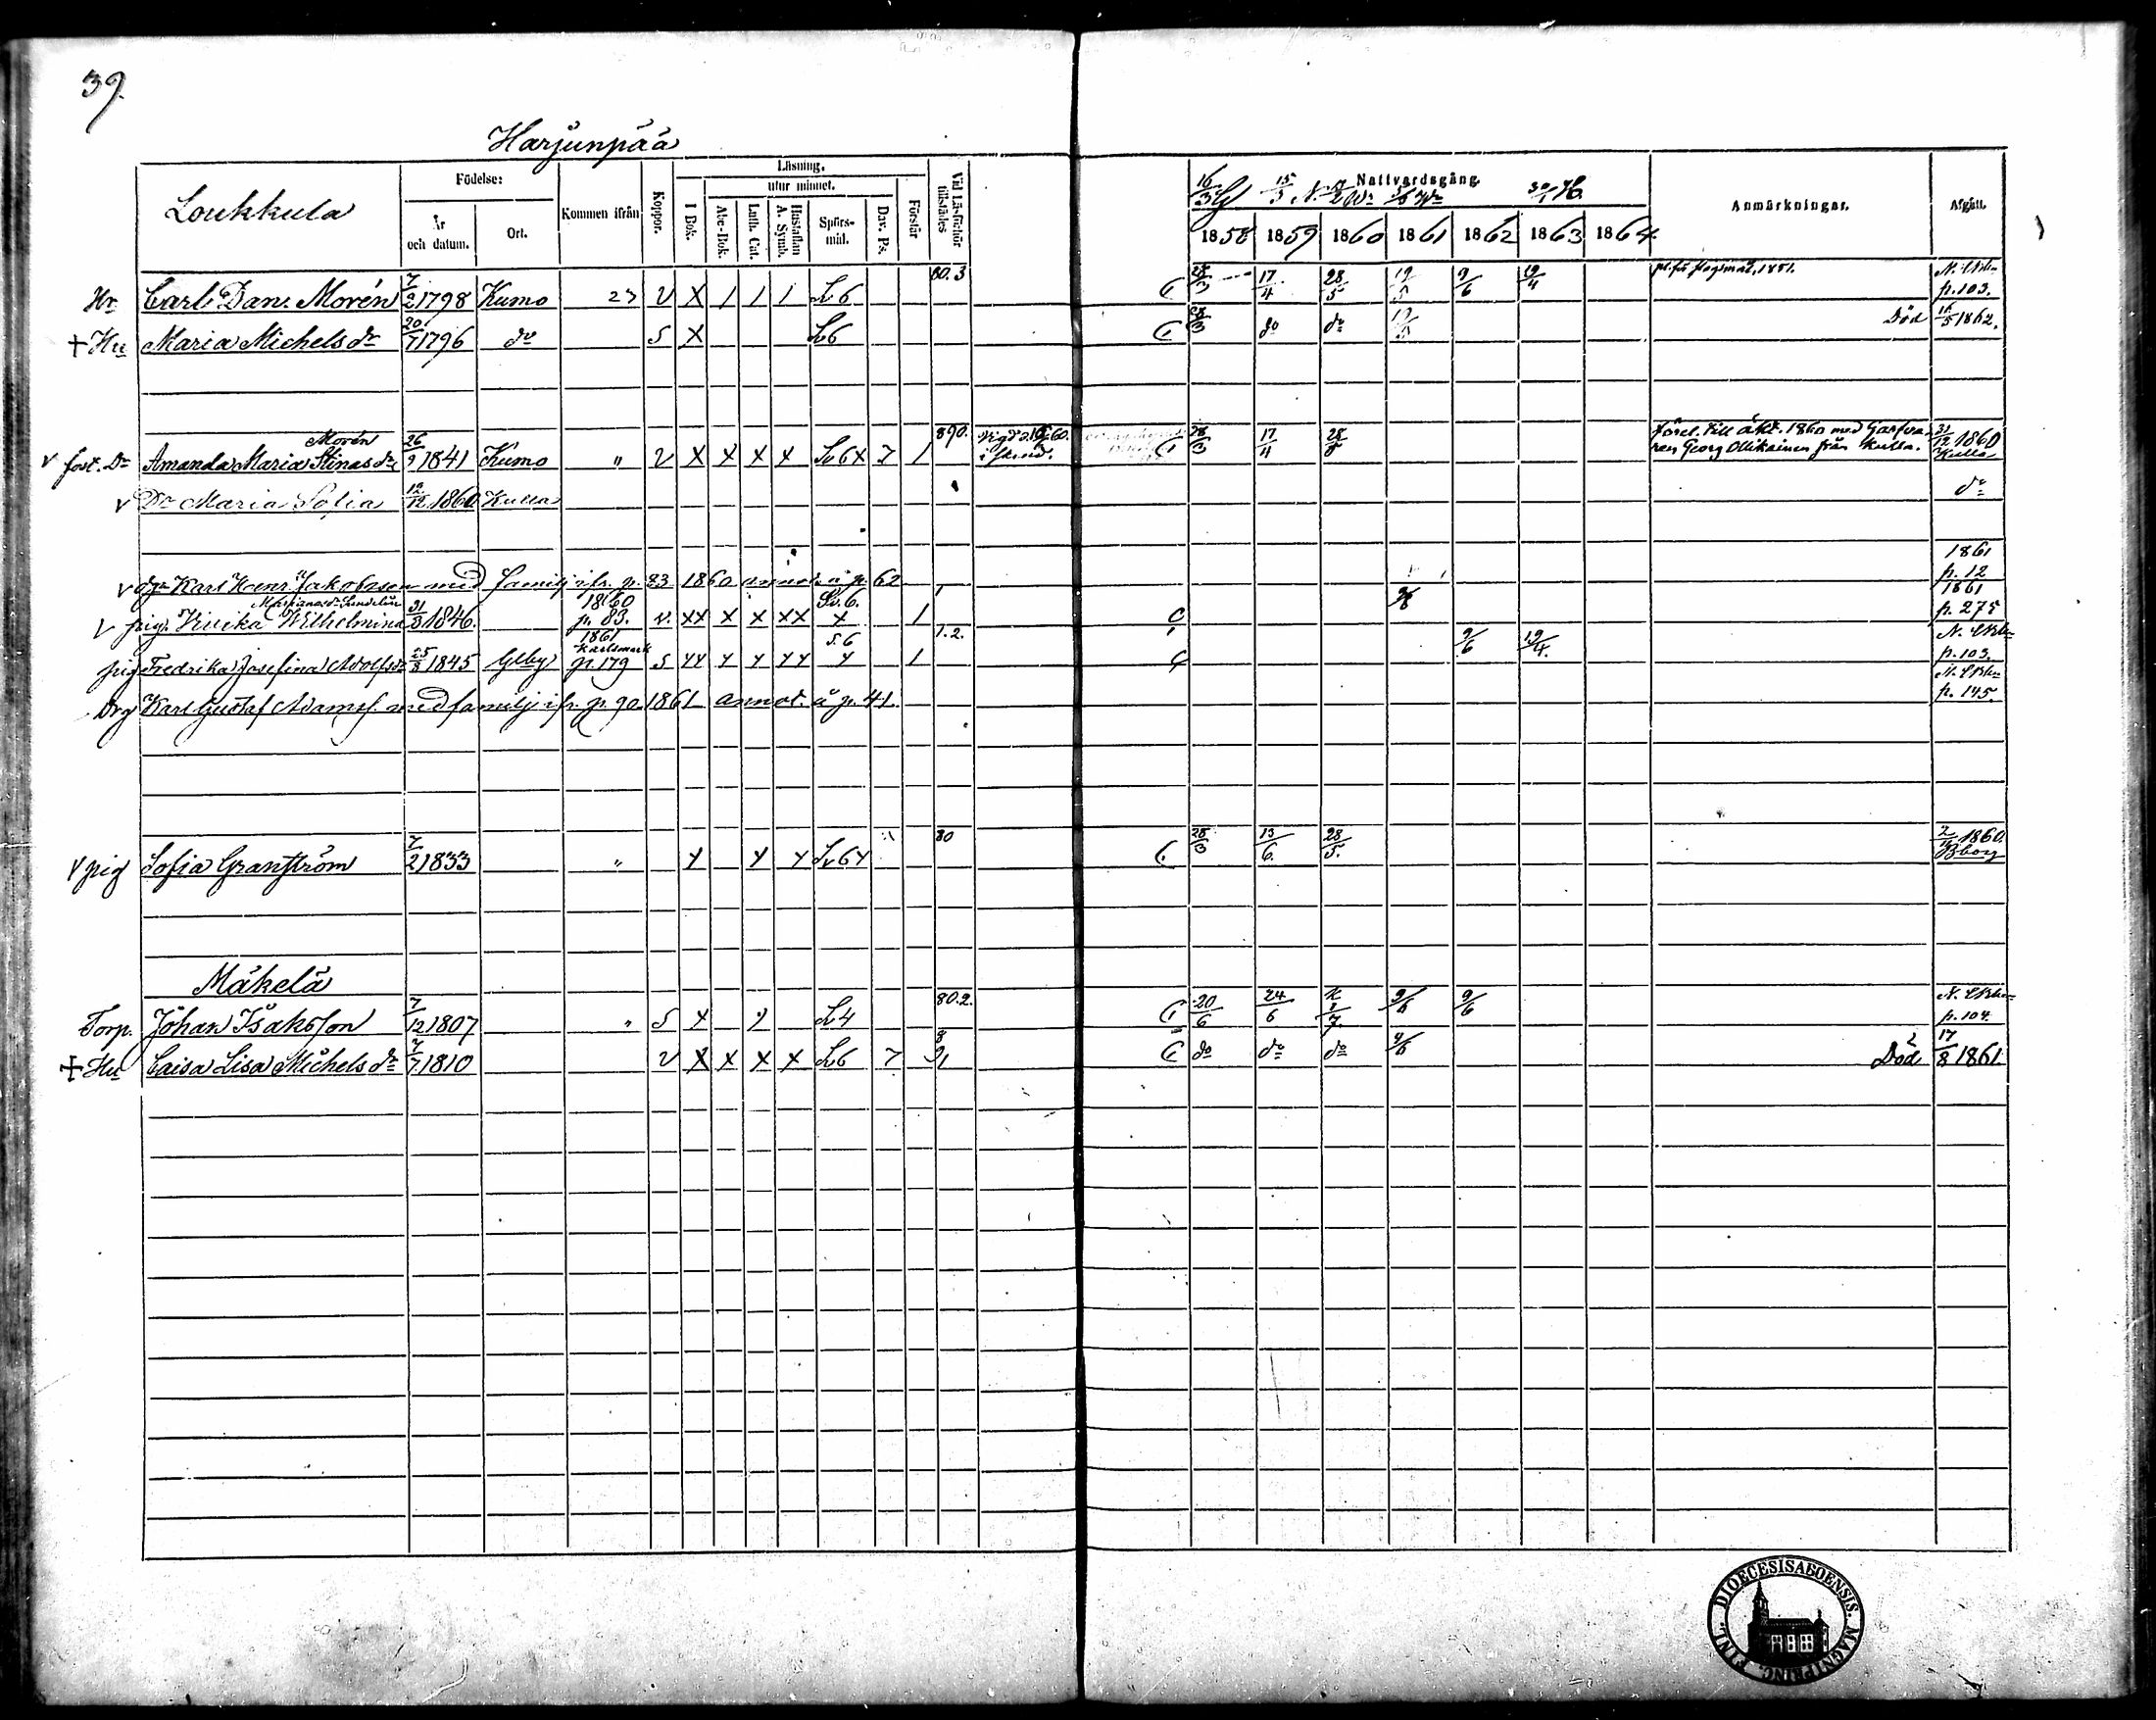 39.
Harjunpää
Loukkula
Födelse:
År och datum.
Ort.
Kommen ifrån
Koppor.
Läsning.
I Bok.
utur minnet.
Abc-Bok.
Luth. Cat.
Hustaflan A. Symb.
Spörs-mål.
Dav. Ps.
Förstår
Vid Läs-förhör tillstädes
Nattvardsgång.
1858 1859 1860 1861 1862 1863 1864
Anmärkningar.
Afgått.
Hr Carl Dan. Morén 7/2 1798 Kumo 23 v X / / / Lv 6 80.3 C 28/3 17/4 28/5 19/5 9/6 19/4 1851. p. 103.
+ Hu Maria Michelsdr 20/7 1796 do S X Lv 6 C 28/3 do do 19/5 Död 16/5 1862.
v fost. Dr Amanda Maria Stinasdr Morén 26/9 1841 Kumo " v X X X X Lv 6 x 7 1 890. C 28/3 17/4 28/5 till äkt. 1860 med Garfva-
ren Georg Ollikainen från Kulla. 31/12 1860 Kulla
v Dr Maria Sofia 12/12 1860 Kulla do
v drg Karl Henr. Jakobsson med familj ifr. p. 83 1860 annot. å p. 62 1861 p. 12
v pig. Ulrika Wilhelmina 31/3 1846. 1860 p. 83. v. XX X X XX Sv. 6. x 1 C 1861 p. 275
pig Fredrika Josefina Adolfsdr 25/3 1845 Ulvby 1861 Karlsmark p. 179 S 5.6 1 1.2. 9/6 19/4. p. 103.
Drg Karl Gustaf Adamss. med familj ifr. p. 90 1861 annot. å p. 41. p. 145.
v pig Sofia Granström 7/2 1833 " Lv 6 80 C 28/3 13/6 28/5. 1860. Bborg
Mäkelä
Torp. Johan Isaksson 7/12 1807 " S Lv 4 80.2. C 20/6 24/6 1/7 9/6 9/6 p. 104.
+ Hu Caisa Lisa Michelsdr 7/7 1810 v X X X X Lv 6 7 C do do do 9/6 Död 17/8 1861.
DIOECESIS ABOENSIS. MAGNI PRINC. FINL.